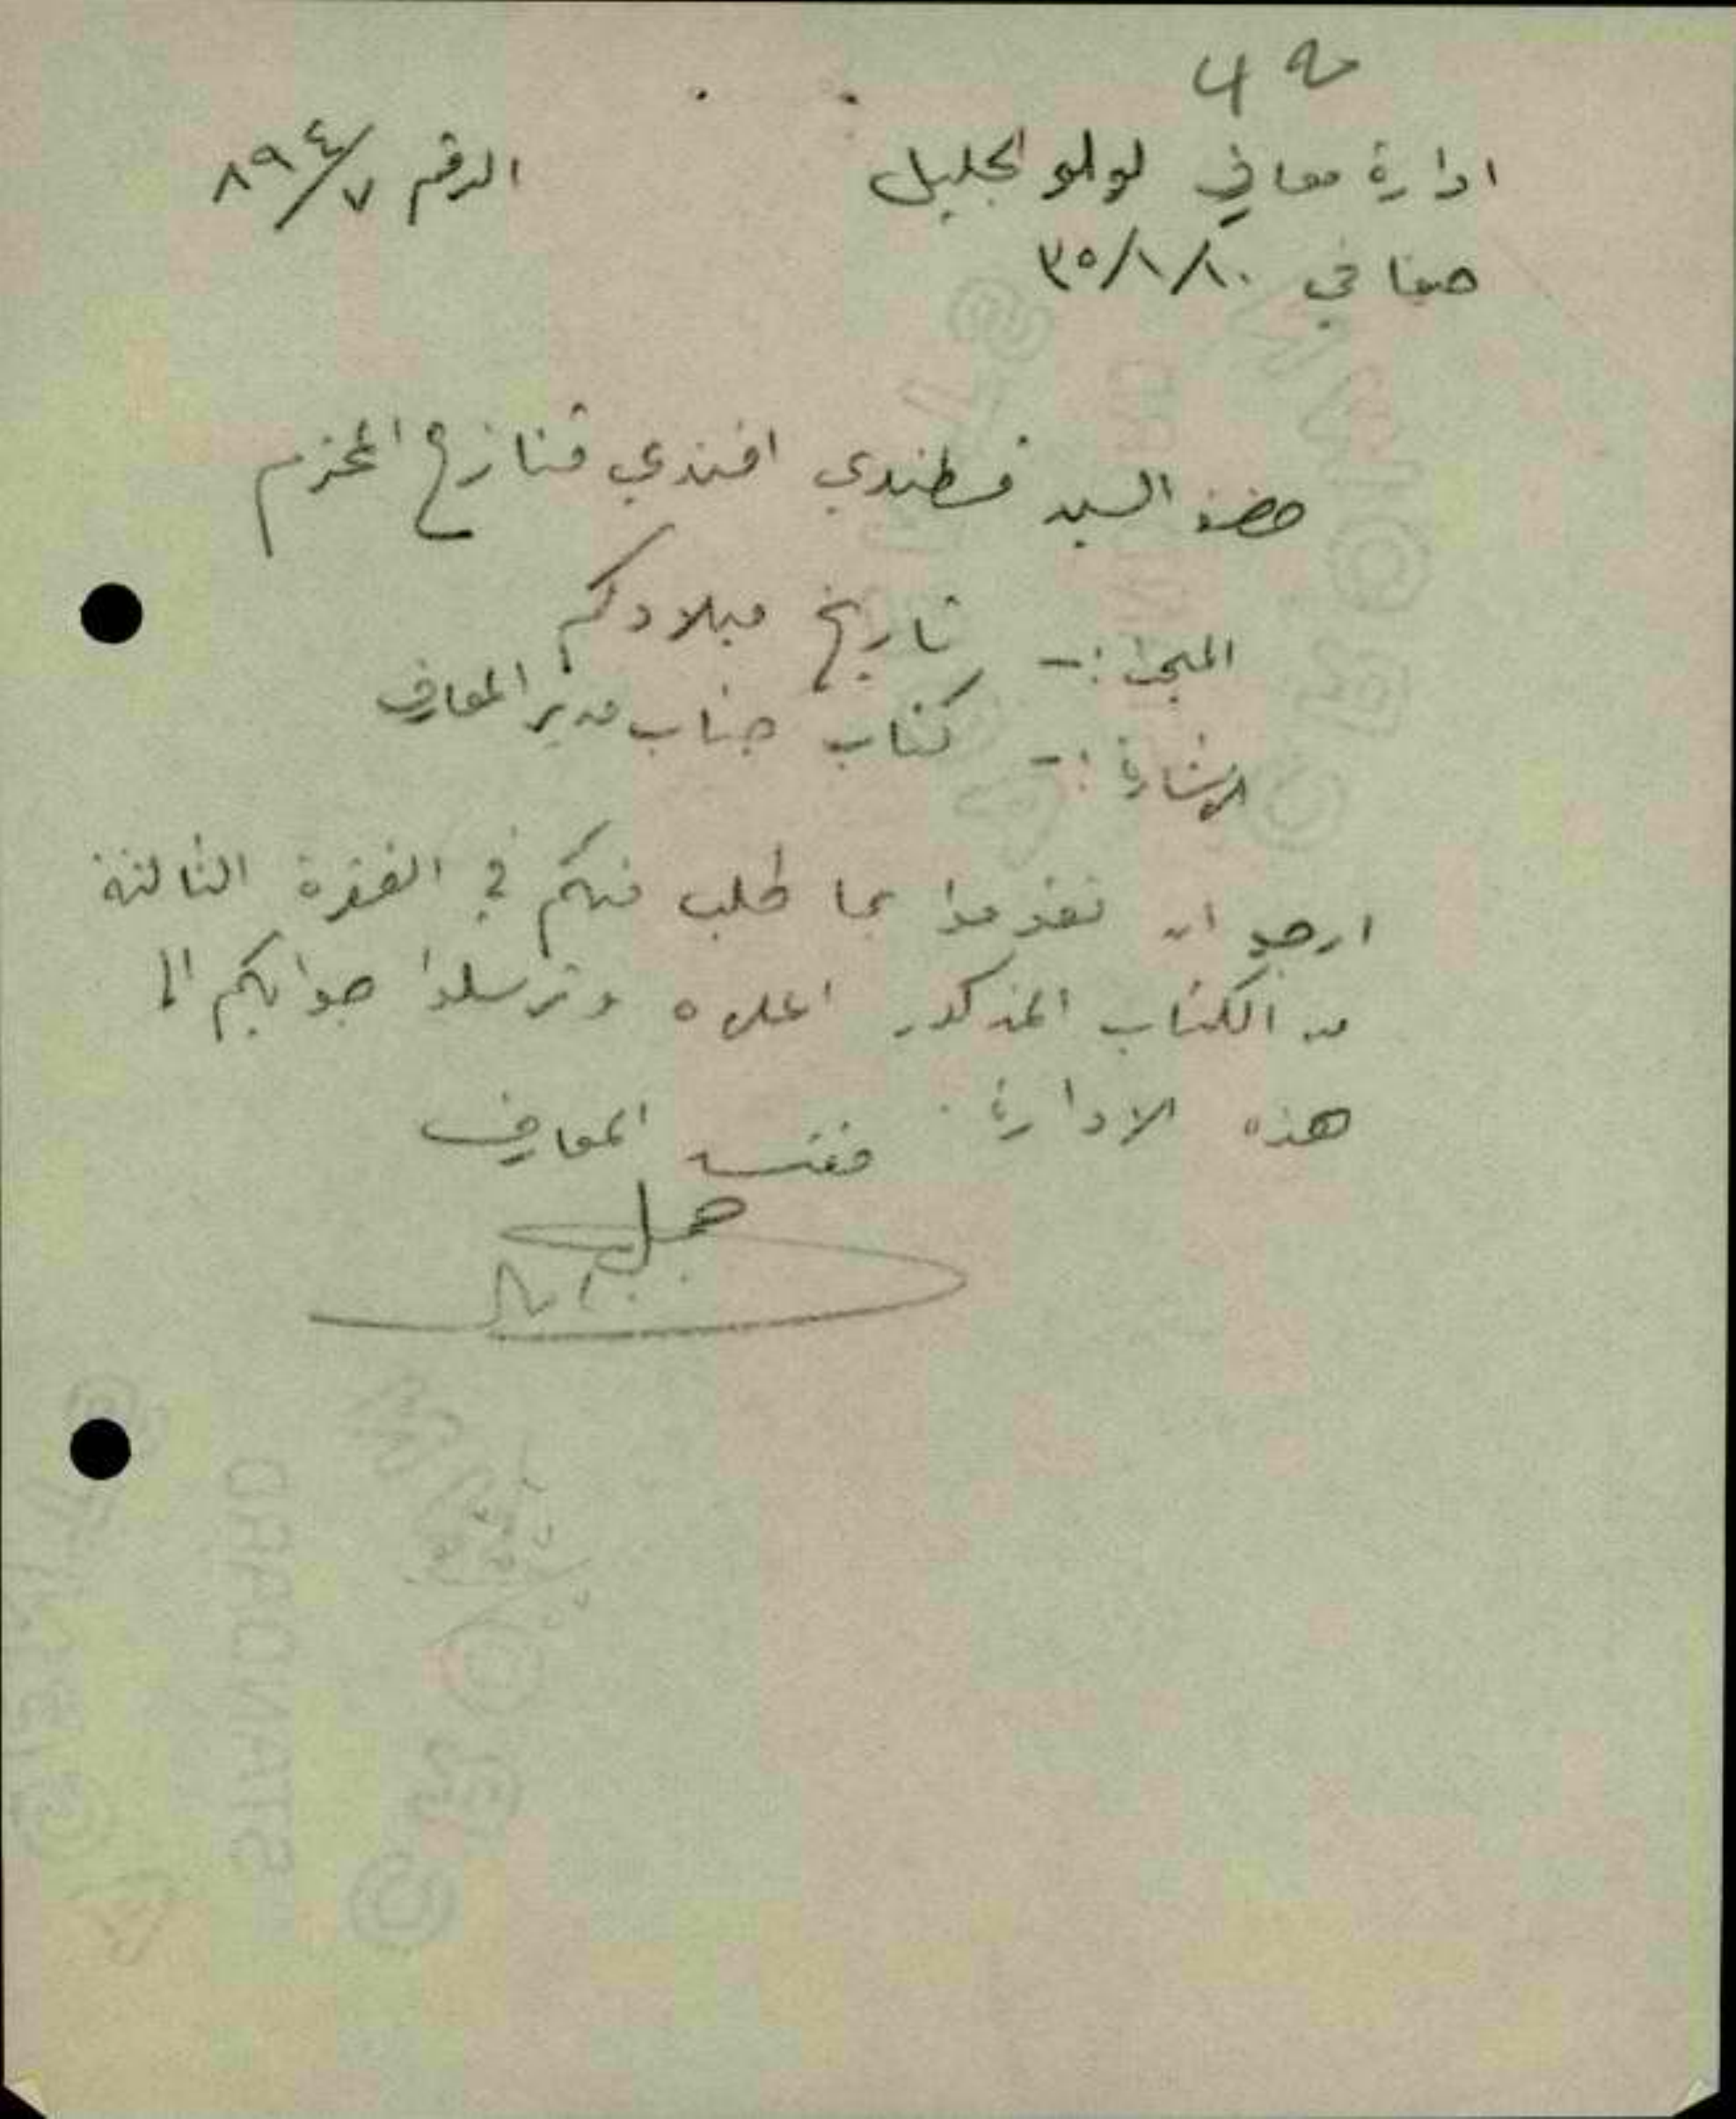 42
ادارة معارف لواء الجليل
الرقم ٧/٨٩٤
حيفا في ٣٥/١/١٠
حضرة السيد قسطندي افندي قنازع المحترم
المبحث :- تاريخ ميلادكم
الاشارة :- كتاب جناب مدير المعارف
ارجو ان تقوموا بما طلب منكم في الفقرة الثالثة
من الكتاب المذكور اعلاه وترسلوا جوابكم الى
هذه الادارة .
مفتش المعارف
STANDARD